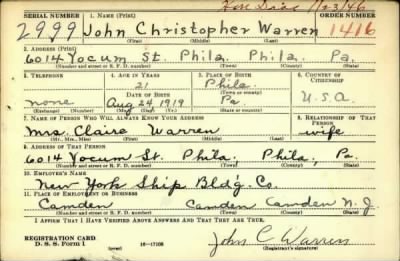 Hon Disc 1/23/46
SERIAL NUMBER 1. NAME (Print) ORDER NUMBER
2999 John Christopher Warren 1416
(First) (Middle) (Last)
2. ADDRESS (Print)
6014 Yocum St. Phila. Phila. Pa.
(Number and street or R. F. D. number) (Town) (County) (State)
3. TELEPHONE 4. AGE IN YEARS 5. PLACE OF BIRTH 6. COUNTRY OF CITIZENSHIP
21 Phila.
DATE OF BIRTH (Town or county)
none Aug 24 1919 Pa. U.S.A.
(Exchange) (Number) (Mo.) (Day) (Yr.) (State or country)
7. NAME OF PERSON WHO WILL ALWAYS KNOW YOUR ADDRESS 8. RELATIONSHIP OF THAT PERSON
Mrs. Claire Warren wife
(Mr., Mrs., Miss) (First) (Middle) (Last)
9. ADDRESS OF THAT PERSON
6014 Yocum St. Phila. Phila. Pa.
(Number and street or R. F. D. number) (Town) (County) (State)
10. EMPLOYER'S NAME
New York Ship Bldg. Co.
11. PLACE OF EMPLOYMENT OR BUSINESS
Camden Camden Camden N.J.
(Number and street or R. F. D. number) (Town) (County) (State)
I AFFIRM THAT I HAVE VERIFIED ABOVE ANSWERS AND THAT THEY ARE TRUE.
REGISTRATION CARD
D. S. S. Form 1 16—17105 John C Warren
(Registrant's signature)